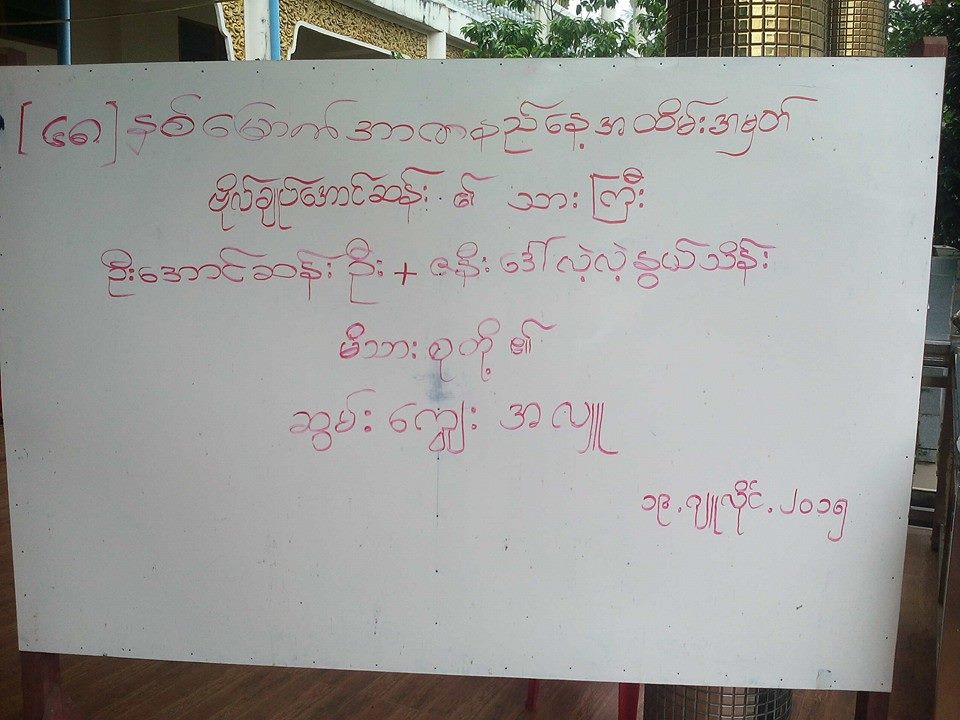 [၆၈] နှစ်မြောက်အာဇာနည်နေ့အထိမ်းအမှတ်
ဗိုလ်ချုပ်အောင်ဆန်း ၏ သားကြီး
ဦးအောင်ဆန်းဦး + ဇနီး ဒေါ်လဲ့လဲ့နွယ်သိန်း
မိသားစုတို့၏
ဆွမ်း ကျွေး အလှူ
၁၉.ဂျူလိုင်.၂၀၁၅